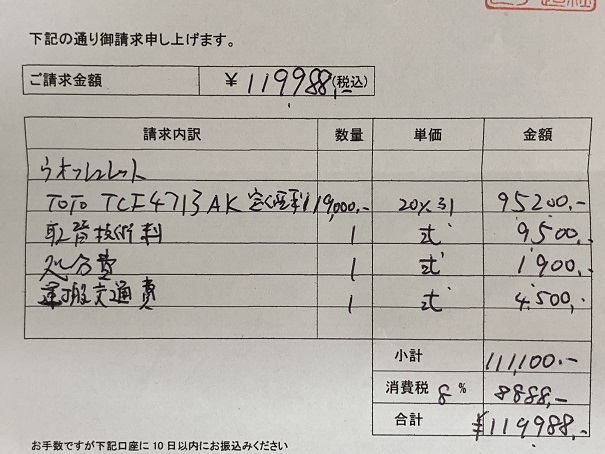 下記の通り御請求申し上げます。
ご請求金額 ¥119988,-(税込)
請求内訳 数量 単価 金額
ウオシュレット
TOTO TCF4713AK 定価 119,000,- 20%引 95200,-
取替技術料 1 式 9500,-
処分費 1 式 1900,-
運搬交通費 1 式 4,500,-
小計 111,100,-
消費税 8% 8888,-
合計 ¥119988,-
お手数ですが下記口座に10日以内にお振込みください